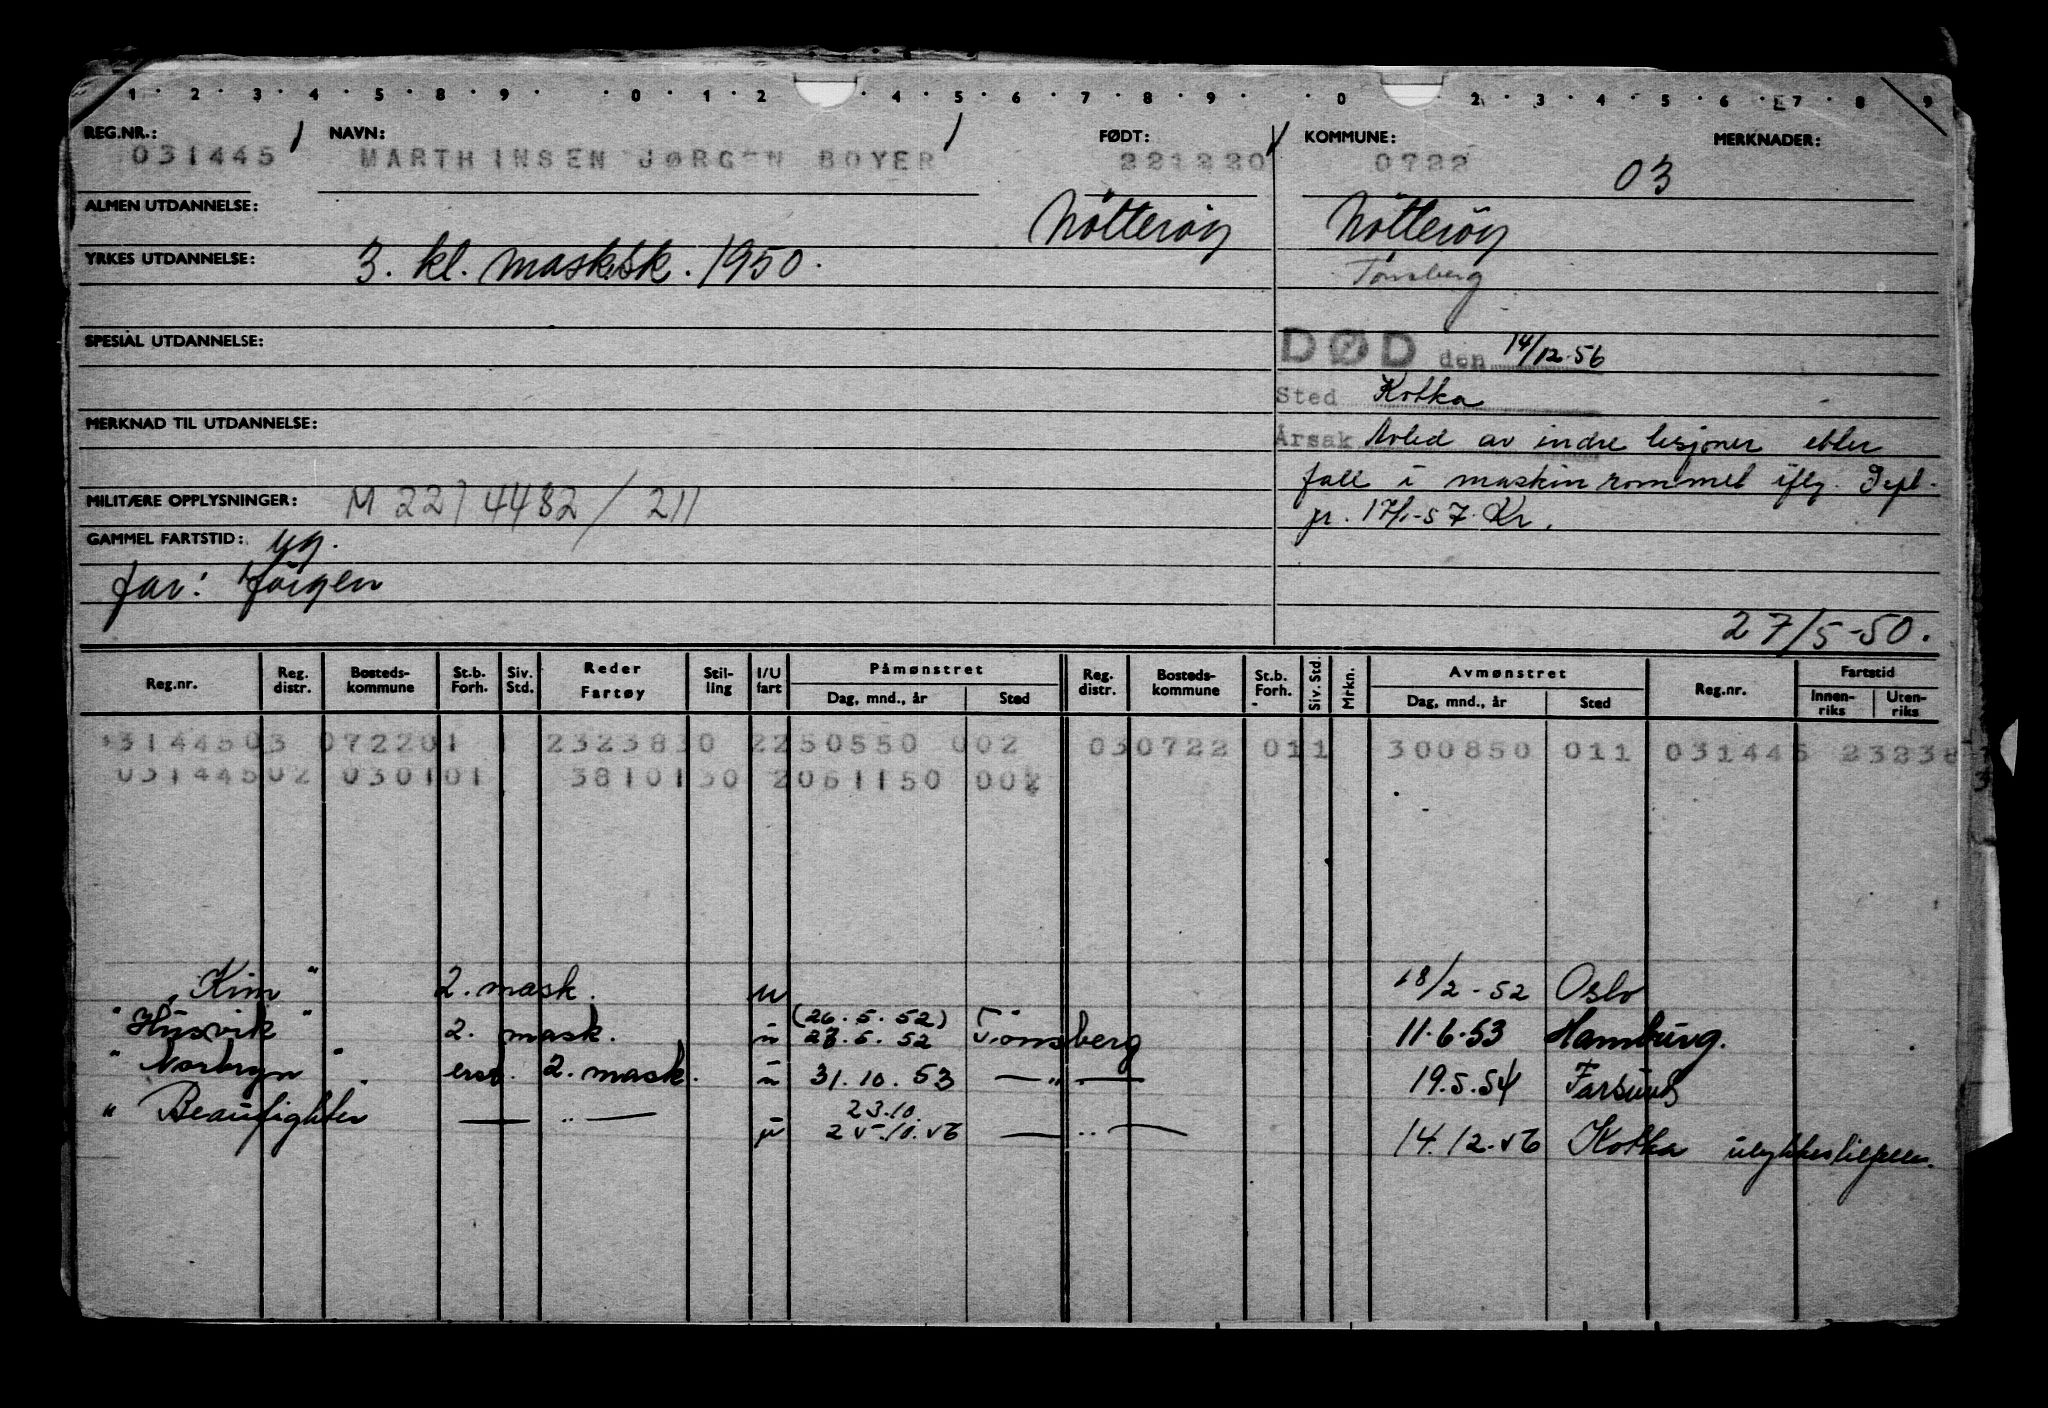 1 · 2 · 3 · 4 · 5 · 8 · 9 · · 0 · 1 · 2 · 4 · 5 · 6 · 7 · 8 · 9 · · 0 · 2 · 3 · 4 · 5 · 6 · 7 · 8 · 9
REG.NR.: NAVN: FØDT: KOMMUNE: MERKNADER:
031445 MARTHINSEN JØRGEN BOYER 221220 0722 03
ALMEN UTDANNELSE: Nötteröy Nötteröy
YRKES UTDANNELSE: 3. kl. mask.sk. 1950. Tønsberg
SPESIAL UTDANNELSE: DØD den 14/12.56
Sted Kotka
MERKNAD TIL UTDANNELSE: Årsak Avled av indre lesjoner etter
fall i maskinrommet iflg.
MILITÆRE OPPLYSNINGER: M 2274482/211
17/1-57. Kr.
GAMMEL FARTSTID: yg.
far: Jörgen
27/5-50.
Reg.nr. Reg. distr. Bosteds- kommune St.b. Forh. Siv. Std. Reder Fartøy Stil- ling I/U fart Påmønstret Dag, mnd., år Sted Reg. distr. Bosteds- kommune St.b. Forh. Siv. Std. Mrkn. Avmønstret Dag, mnd., år Sted Reg.nr. Fartstid Innen- riks Uten- riks
3144503 072201 1 2323830 2250550 002 030722 011 300850 011 031445 23238
03144502 030101 3810130 2061150 002
"Kim" 2. mask. u 18/2-52 Oslo
(26.5.52)
"Husvik" 2. mask. u 27.5.52 Tönsberg 11.6.53 Hamburg.
"Norbryn" erst. 2. mask. u 31.10.53 — " — 19.5.54 Farsund
23.10.
" Beaufighter — " — u 25.10.56 — " — 14.12.56 Kotka ulykkestilfelle.